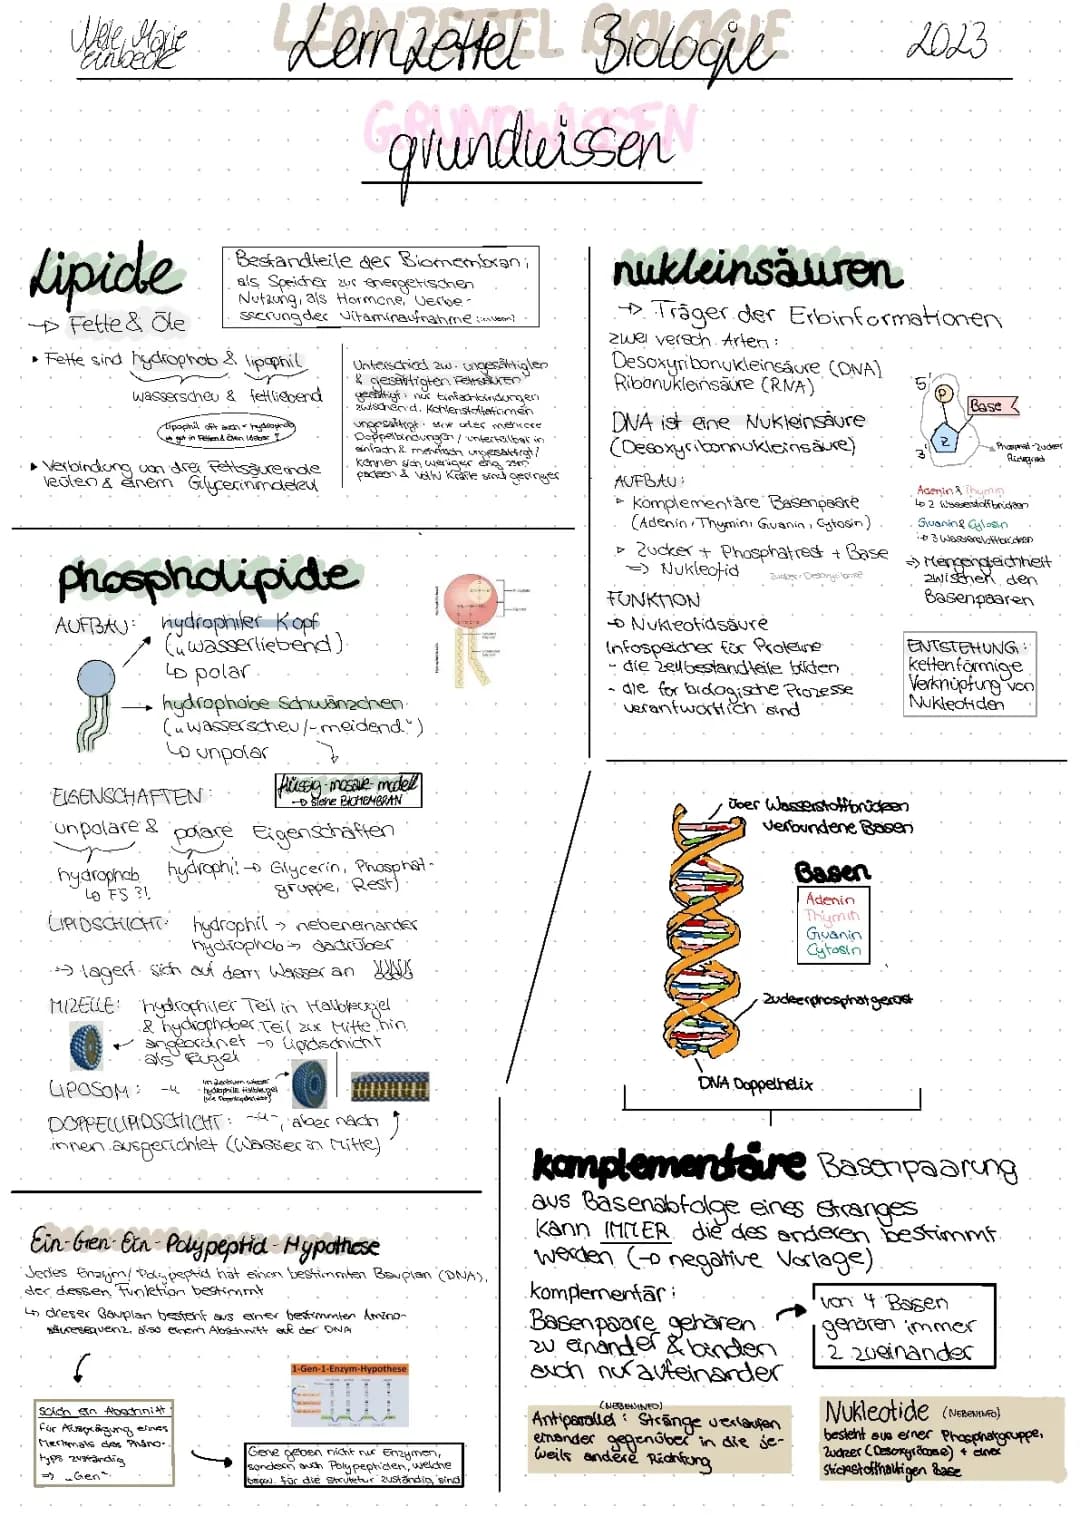 Marie
Einbeck
LERNZETTEL BIOLOGIE
Lernzettel Biologie
2023
GRUNDWISSEN
grundwissen
Lipide
→ Fette & Öle
Bestandteile der Biomembran;
als Speicher zur energetischen
Nutzung, als Hormone, Verbe-
sserung der Vitaminaufnahme
• Fette sind hydrophob & lipophil
wasserscheu & fettliebend
lipophil oft auch = hydrophob
• Verbindung von drei Fettsäuremole
külen & einem Glycerinmolekül
Unterschied zw. ungesättigten
& gesättigten Fettsäuren
gesättigt: nur Einfachbindungen
zwischen d. Kohlenstoffatomen
ungesättigt: eine oder mehrere
Doppelbindungen / unterteilbar in
einfach & mehrfach ungesättigt /
können sich weniger eng zsm
packen & VdW Kräfte sind geringer
phospholipide
AUFBAU: hydrophiler Kopf
(„wasserliebend)
↳ polar
hydrophobe Schwänzchen
(„wasserscheu/-meidend")
↳ unpolar
flüssig-mosaik-modell
→ siehe BIOMEMBRAN
EIGENSCHAFTEN:
unpolare & polare Eigenschaften
hydrophob
↳ FS ?!
hydrophil → Glycerin, Phosphat-
gruppe, Rest)
LIPIDSCHICHT: hydrophil → nebeneinander
hydrophob → dadrüber
→ lagert sich auf dem Wasser an
MIZELLE: hydrophiler Teil in Halbkugel
& hydrophober Teil zur Mitte hin
angeordnet → Lipidschicht
als Kugel
LIPOSOM: -"-
im Zentrum wieder
hydrophile Halbkugel
DOPPELLIPIDSCHICHT: -"-, aber nach
innen ausgerichtet (Wasser in Mitte)
Ein-Gen-Ein-Polypeptid-Hypothese
Jedes Enzym/Polypeptid hat einen bestimmten Bauplan (DNA),
der dessen Funktion bestimmt
↳ dieser Bauplan besteht aus einer bestimmten Amino-
säuresequenz, also einem Abschnitt auf der DNA
Solch ein Abschnitt
für Ausprägung eines
Merkmals des Phäno-
typs zuständig
⇒ „Gen"
1-Gen-1-Enzym-Hypothese
Gene geben nicht nur Enzymen,
sondern auch Polypeptiden, welche
bspw. für die Struktur zuständig sind
nukleinsäuren
→ Träger der Erbinformationen
zwei versch. Arten:
Desoxyribonukleinsäure (DNA)
Ribonukleinsäure (RNA)
DNA ist eine Nukleinsäure
(Desoxyribonnukleinsäure)
AUFBAU:
▸ komplementäre Basenpaare
(Adenin, Thymin, Guanin, Cytosin)
▸ Zucker + Phosphatrest + Base
⇒ Nukleotid
Zucker = Desoxyribose
FUNKTION
→ Nukleotidsäure
Infospeicher für Proteine
- die Zellbestandteile bilden
- die für biologische Prozesse
verantwortlich sind
5'
P
Base
Z
3'
Phosphat-Zucker
Rückgrad
Adenin & Thymin
↳ 2 Wasserstoffbrücken
Guanin & Cytosin
↳ 3 Wasserstoffbrücken
⇒ Mengengleichheit
zwischen den
Basenpaaren
ENTSTEHUNG:
kettenförmige
Verknüpfung von
Nukleotiden
über Wasserstoffbrücken
verbundene Basen
Basen
Adenin
Thymin
Guanin
Cytosin
Zuckerphosphatgerüst
DNA Doppelhelix
komplementäre Basenpaarung
aus Basenabfolge eines Stranges
kann IMMER die des anderen bestimmt
werden (→ negative Vorlage)
komplementär:
Basenpaare gehören
zu einander & binden
auch nur aufeinander
von 4 Basen
gehören immer
2 zueinander
(NEBENINFO)
Antiparallel: Stränge verlaufen
einander gegenüber in die je-
weils andere Richtung
Nukleotide (NEBENINFO)
besteht aus einer Phosphatgruppe,
Zucker (Desoxyribose) + einer
stickstoffhaltigen Base